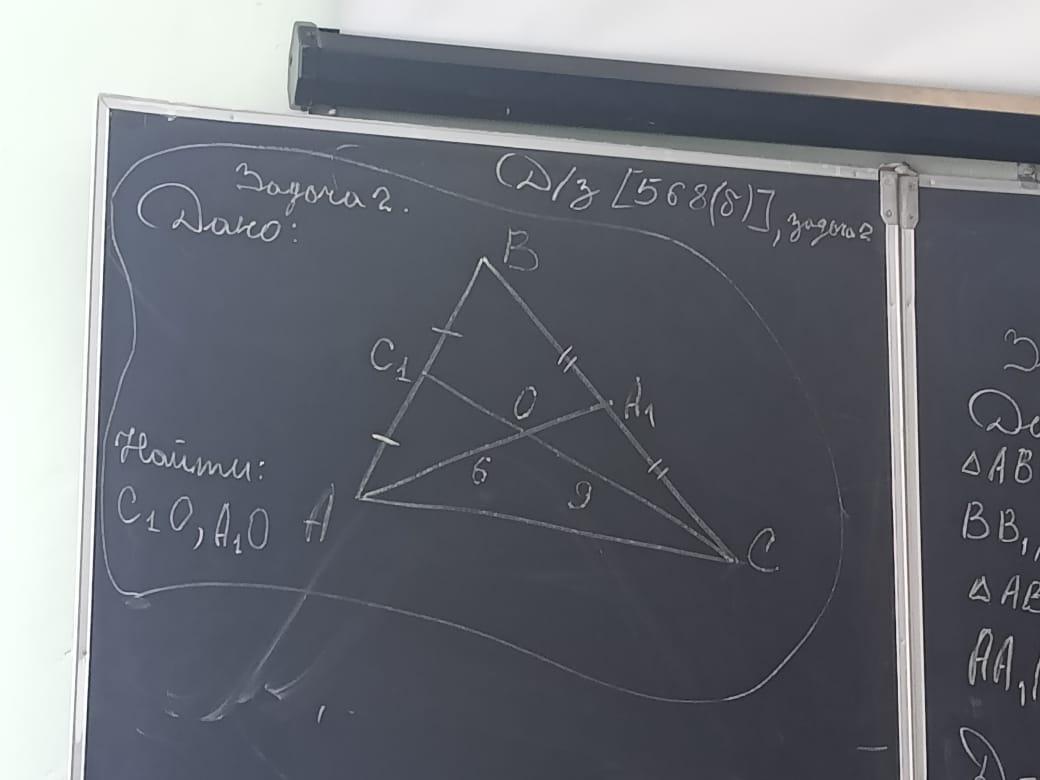 Задача 2.
Д/з [568(б)], задача 2
Дано:
B
C₁
O
A₁
6
9
Найти:
C₁O, A₁O
A
C
З
△AB
BB₁,
△AB
AA₁,